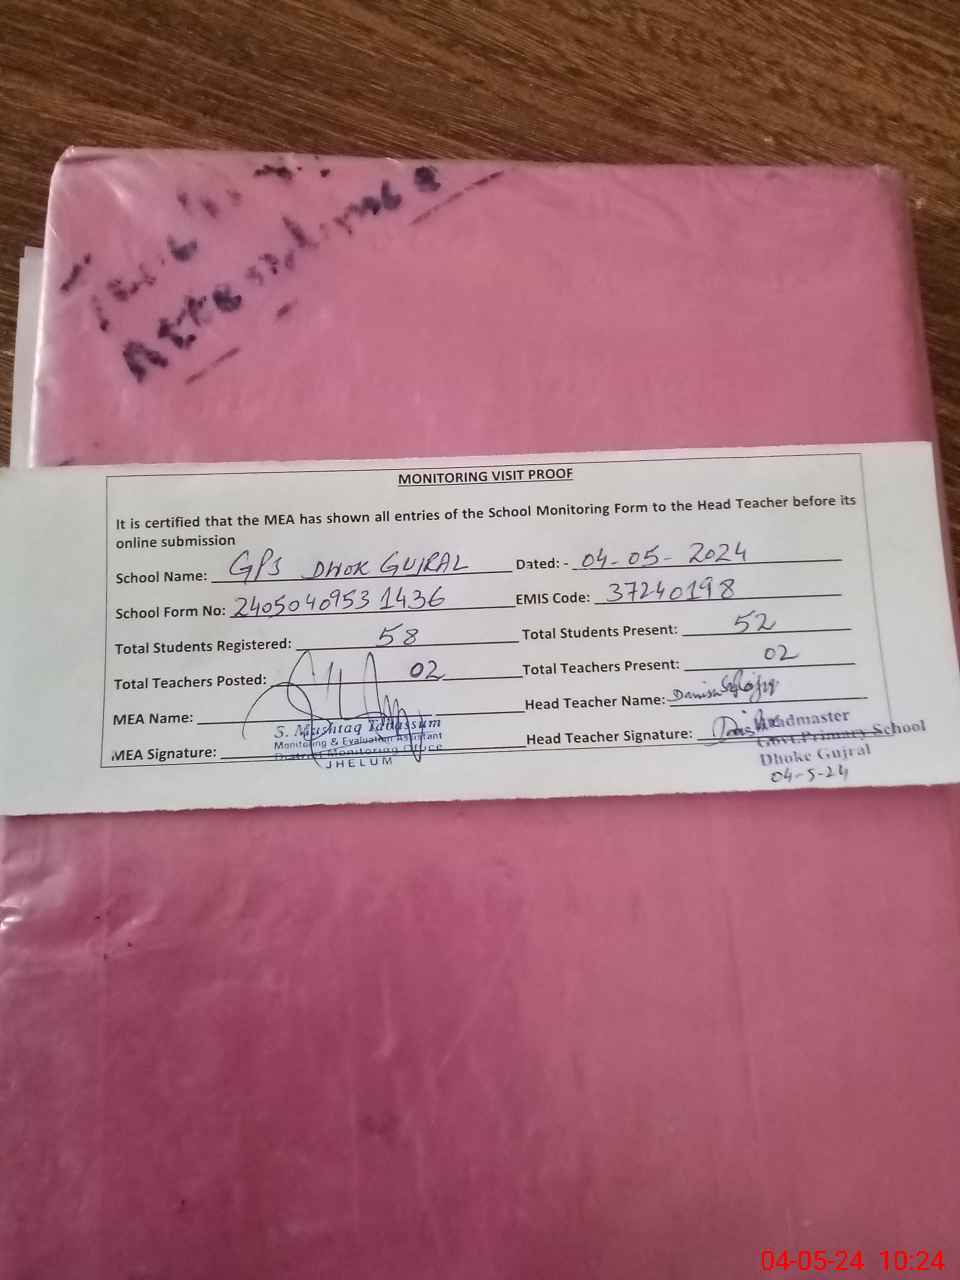 MONITORING VISIT PROOF
It is certified that the MEA has shown all entries of the School Monitoring Form to the Head Teacher before its
online submission
School Name: GPS DHOK GUJRAL Dated: - 04-05-2024
School Form No: 24050409531436 EMIS Code: 37240198
Total Students Registered: 58 Total Students Present: 52
Total Teachers Posted: 02 Total Teachers Present: 02
MEA Name: Head Teacher Name: Danish
S. Mushtaq Tabassum
Monitoring & Evaluation Assistant
District Monitoring Office
JHELUM
MEA Signature: Head Teacher Signature:
Headmaster
Govt. Primary School
Dhoke Gujral
04-5-24
04-05-24 10:24